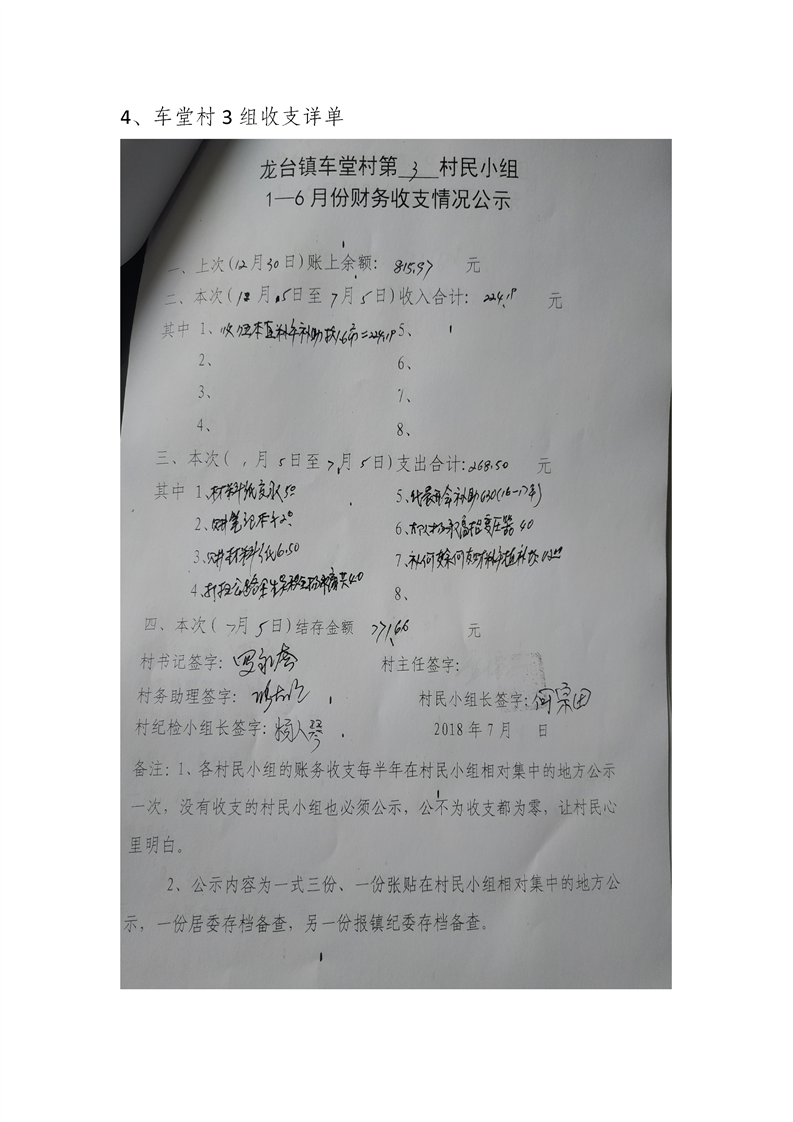 4、车堂村3组收支详单
龙台镇车堂村第 3 村民小组
1—6月份财务收支情况公示
一、上次(12月30日)账上余额: 815.97 元
二、本次( 月 5日至 7月5日)收入合计: 224.19 元
其中 1、收 5、
2、 6、
3、 7、
4、 8、
三、本次( 月5日至7月5日)支出合计:268.50 元
其中 1、材料 5、
2、购笔记本 6、
3、购材料纸6.50 7、补何
4、 40 8、
四、本次(7月5日)结存金额 771.66 元
村书记签字: 村主任签字:
村务助理签字: 村民小组长签字:何宗田
村纪检小组长签字: 2018年7月 日
备注:1、各村民小组的账务收支每半年在村民小组相对集中的地方公示
一次,没有收支的村民小组也必须公示,公不为收支都为零,让村民心
里明白。
2、公示内容为一式三份、一份张贴在村民小组相对集中的地方公
示,一份居委存档备查,另一份报镇纪委存档备查。